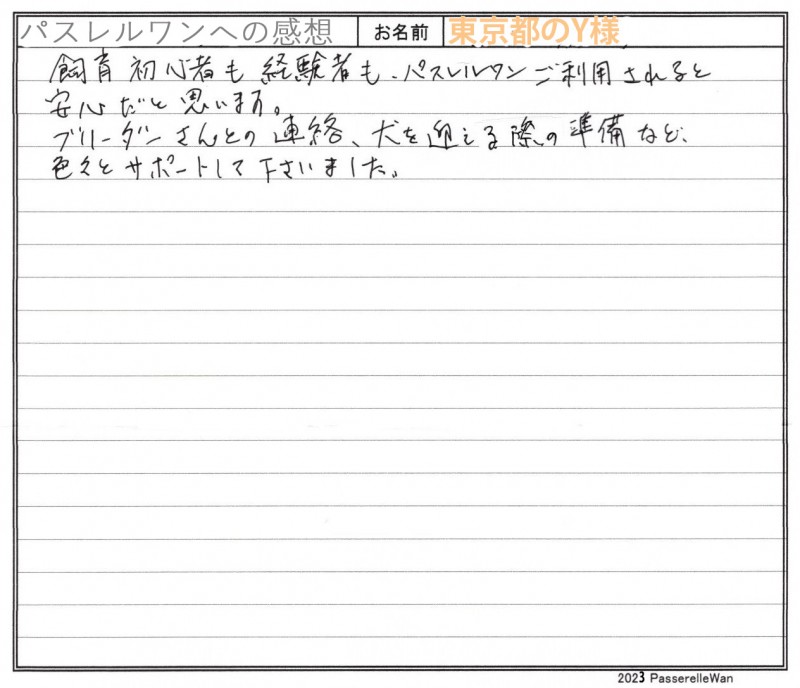 パスレルワンへの感想 お名前 東京都のY様
飼育初心者も経験者も、パスレルワンご利用されると
安心だと思います。
ブリーダーさんとの連絡、犬を迎える際の準備など、
色々とサポートして下さいました。
2023 PasserelleWan